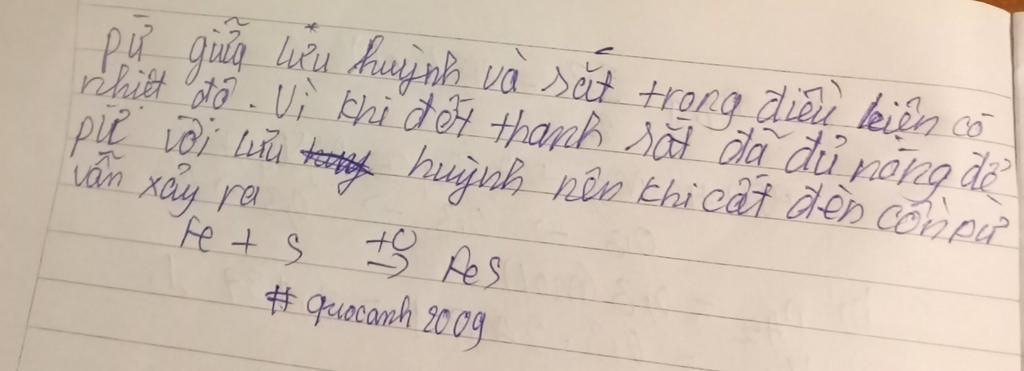 pứ giữa lưu huỳnh và sắt trong điều kiện có
nhiệt độ. Vì khi đốt thanh sắt đã đủ nóng để
pứ với lưu huỳnh nên khi cất đèn cồn pứ
vẫn xảy ra
Fe + S →(t°) FeS
# quocanh 2009